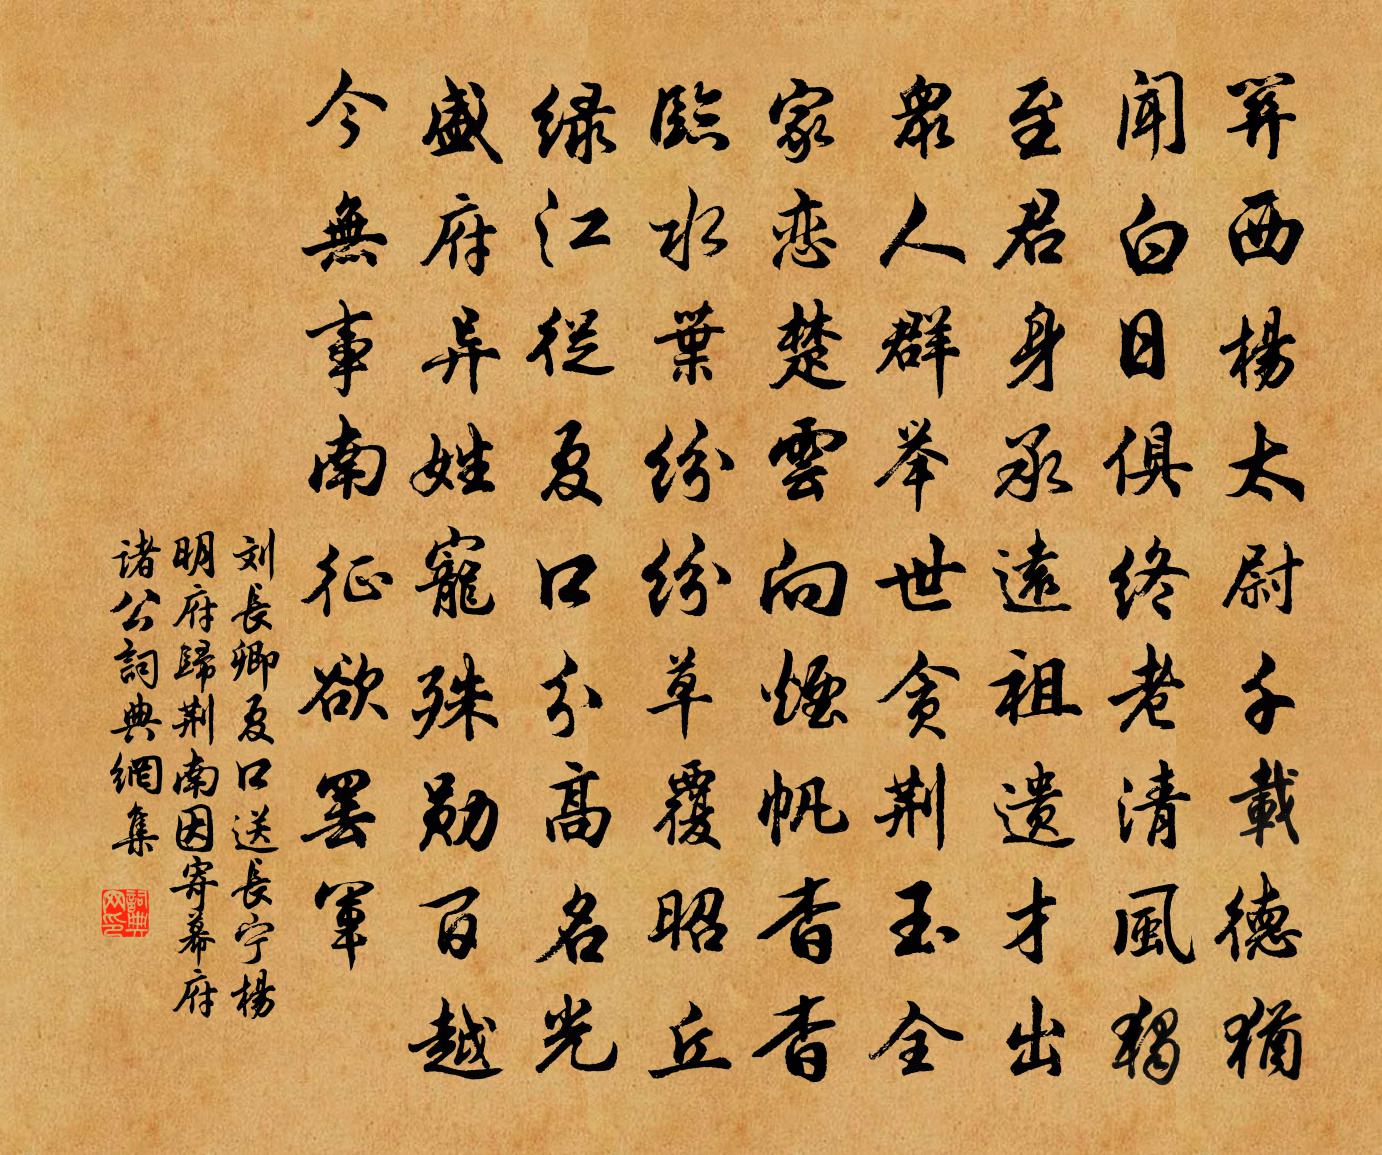 关西楊太尉千載德猶
闻白日俱终老清風獨
至君身承遠祖遗才出
衆人群举世贪荆玉全
家恋楚雲向煙帆杳杳
臨水葉紛紛草覆昭丘
緑江從夏口分高名光
盛府异姓寵殊勛百越
今無事南征欲罢軍
刘長卿夏口送長宁楊
明府歸荆南因寄幕府
诸公詞典網集
詞典网印